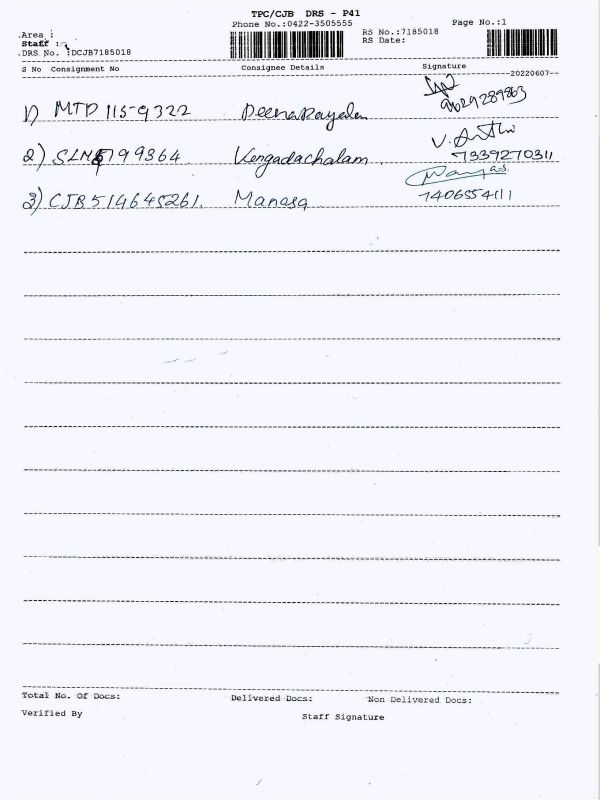 TPC/CJB DRS - P41
Phone No.:0422-3505555
Page No.:1
.Area :
RS No.:7185018
Staff :
RS Date:
.DRS No. :DCJB7185018
S No Consignment No Consignee Details Signature
--20220607--
1) MTP 115-9322 Deenadayalan
9629289863
2) SLM 5199364 Vengadachalam. V.
7339270311
3) CJB 514645261. Manasa
7406554111
Total No. Of Docs: Delivered Docs: Non Delivered Docs:
Verified By Staff Signature